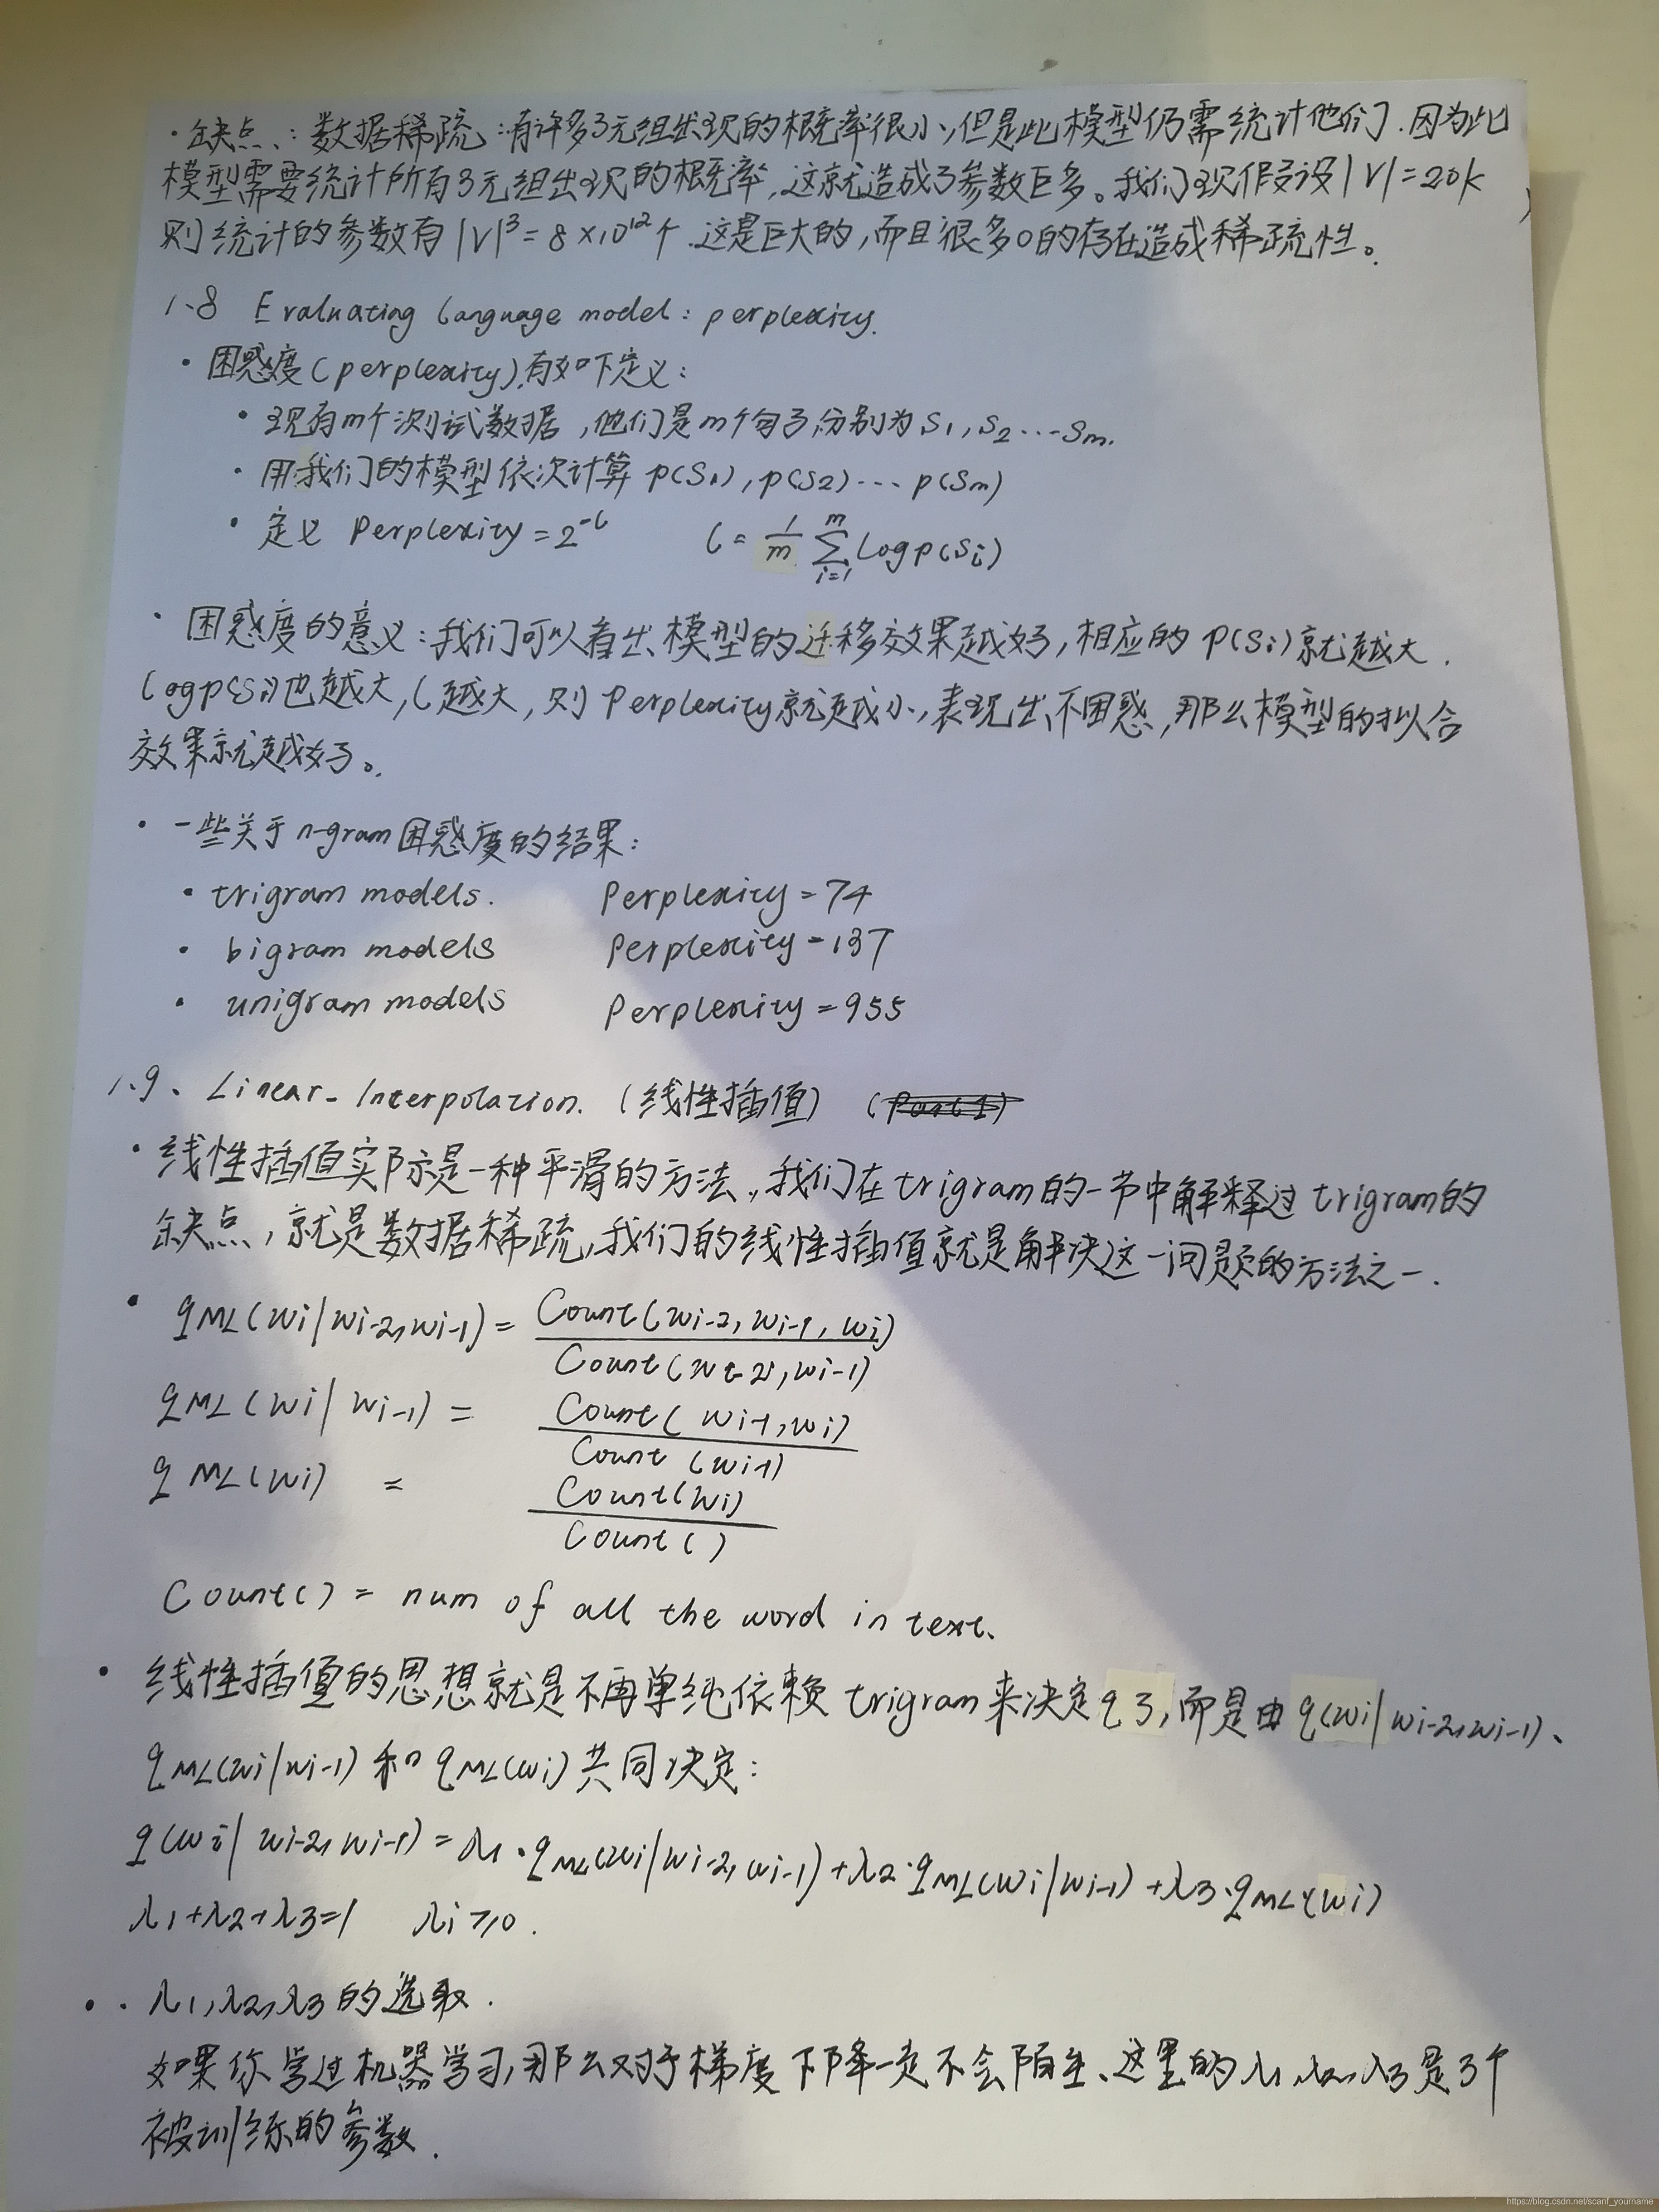 · 缺点：数据稀疏：有许多3元组出现的概率很小，但是此模型仍需统计他们．因为此
模型需要统计所有3元组出现的概率，这就造成了参数巨多。我们现假设|V|=20k
则统计的参数有|V|³=8×10¹²个．这是巨大的，而且很多0的存在造成稀疏性。
1.8 Evaluating language model: perplexity.
· 困惑度(perplexity)，有如下定义：
· 现有m个测试数据，他们是m个句子，分别为S1, S2 ··· Sm.
· 用我们的模型依次计算 p(S1), p(S2) ··· p(Sm)
· 定义 Perplexity = 2^-l l = 1/m ∑_{i=1}^{m} log p(Si)
· 困惑度的意义：我们可以看出，模型的迁移效果越好，相应的 p(Si)就越大．
logp(Si)也越大，l越大，则 Perplexity就越小，表现出不困惑，那么模型的拟合
效果就越好。
· 一些关于n-gram困惑度的结果：
· trigram models. Perplexity = 74
· bigram models Perplexity = 137
· unigram models Perplexity = 955
1.9、Linear-Interpolation.（线性插值）(Part 1)
· 线性插值实际是一种平滑的方法，我们在trigram的一节中解释过trigram的
缺点，就是数据稀疏，我们的线性插值就是解决这一问题的方法之一．
· qML(wi|wi-2,wi-1) = Count(wi-2, wi-1, wi) / Count(wi-2, wi-1)
qML(wi|wi-1) = Count(wi-1,wi) / Count(wi-1)
qML(wi) = Count(wi) / Count()
Count() = num of all the word in text.
· 线性插值的思想就是不再单纯依赖 trigram来决定q3，而是由q(wi|wi-2,wi-1)、
qML(wi|wi-1) 和 qML(wi)共同决定：
q(wi|wi-2,wi-1) = λ1·qML(wi|wi-2,wi-1) + λ2·qML(wi|wi-1) + λ3·qML(wi)
λ1+λ2+λ3=1 λi≥0.
· · λ1,λ2,λ3的选取．
如果你学过机器学习，那么对于梯度下降一定不会陌生、这里的λ1,λ2,λ3是3个
被训练的参数．
https://blog.csdn.net/scanf_yourname